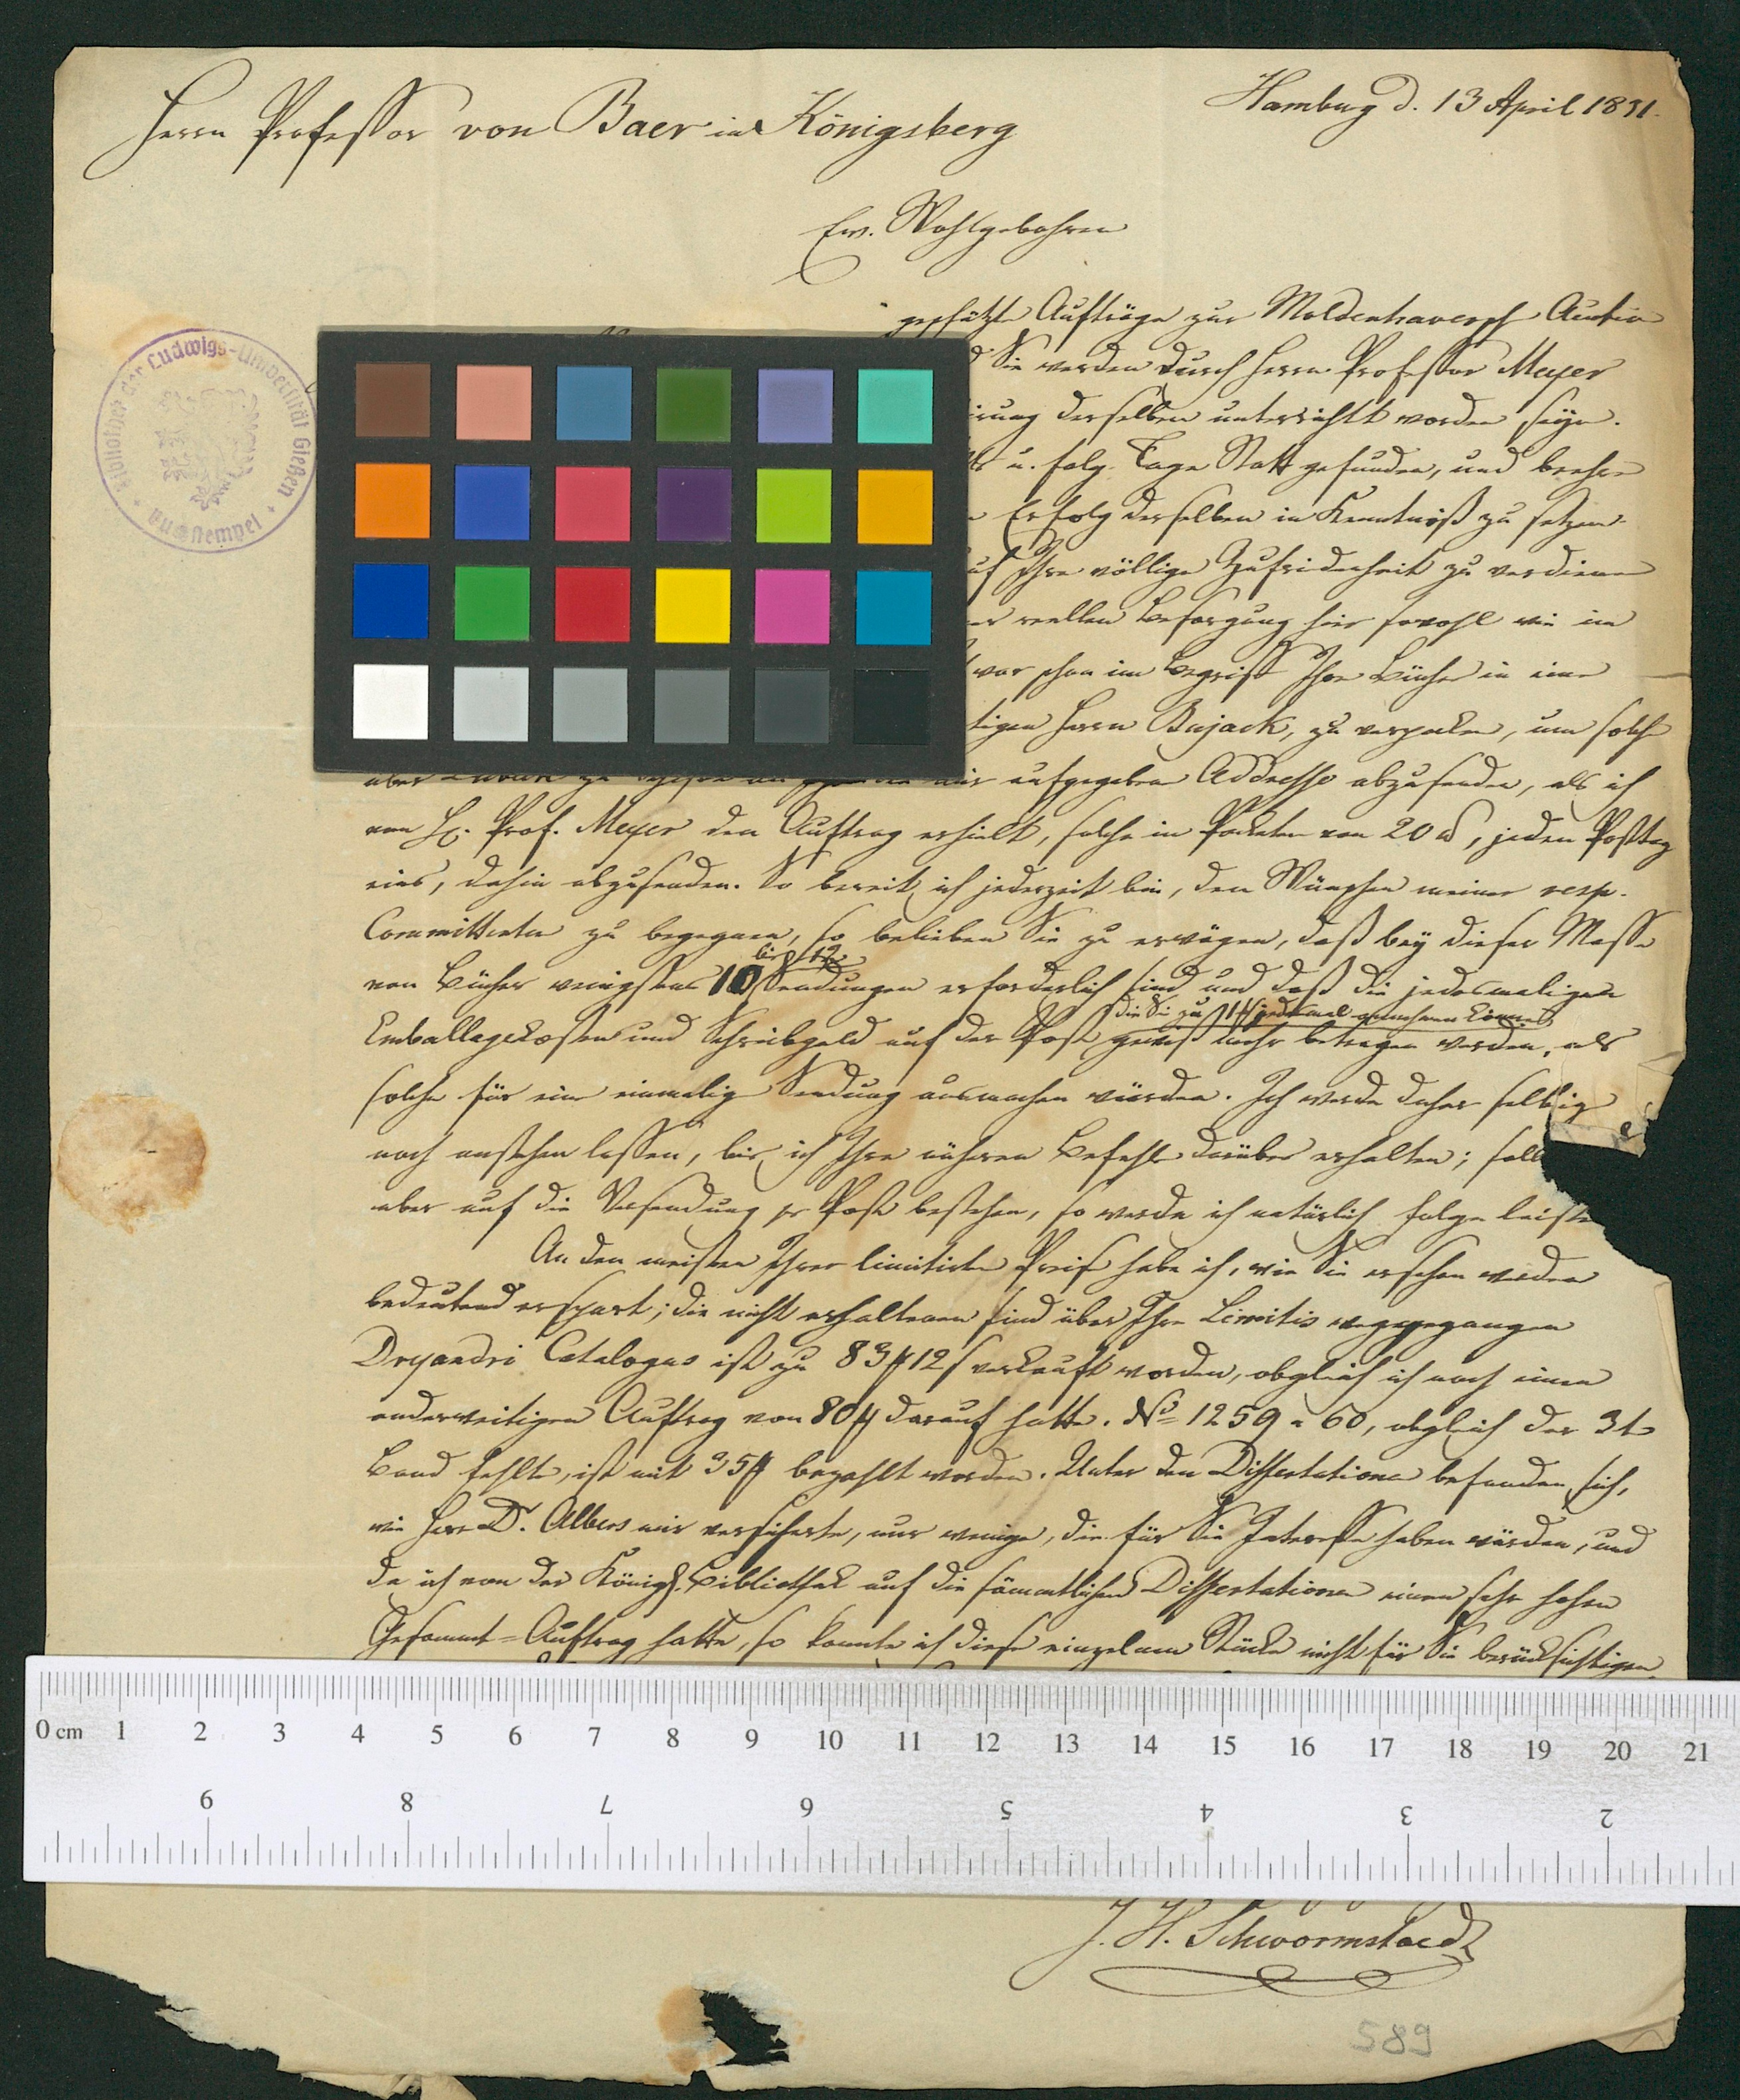 Hamburg d. 13 April 1831.
Herrn Professor von Baer in Königsberg
Ew. Wohlgebohren
geschätzte Aufträge zur Moldenhawersch Auction
Sie werden durch Herrn Professor Meyer
derselben unterrichtet worden seyn.
u. folg. Tage Statt gefunden, und beehre
Erfolg derselben in Kenntniß zu setzen.
Ihre völlige Zufriedenheit zu verdienen
reellen Besorgung hier sowohl wie in
war schon im Begriff Ihre Bücher in eine
Herrn Bujack, zu verpacken, um solche
mir aufgegebene Addresse abzusenden, als ich
von H. Prof. Meyer den Auftrag erhielt, solche in Packeten von 20 ℔, jeden Posttag
eins, dahin abzusenden. So bereit ich jederzeit bin, den Wünschen meiner resp.
Committenten zu begegnen, so belieben Sie zu erwägen, daß bey dieser Masse
bis 12
von Bücher wenigstens 10 Sendungen erforderlich sind und daß die jedesmaligen
die Sie zu jedesmal annehmen können
Emballagekosten und Schreibgeld auf der Post gewiß mehr betragen werden, als
solche für eine einmalige Sendung ausmachen würden. Ich werde daher selbige
noch anstehen lassen, bis ich Ihre näheren Befehle darüber erhalten; soll
aber auf die Versendung pr Post bestehen, so werde ich natürlich Folge leiste
An den meisten Ihrer limitirten Preise habe ich, wie Sie ersehen werden
bedeutend erspart; die nicht erhaltenen sind über Ihre Limitis weggegangen
Dryandri Catalogus ist zu 83 12 verkauft worden, obgleich ich noch einen
anderweitigen Auftrag von 80 darauf hatte. No 1259 a 60, obgleich der 3te
Band fehlte, ist mit 35 bezahlt worden. Unter den Dissertationen befanden sich,
wie Herr Dr. Albers mir versicherte, nur wenige, die für Sie Interesse haben würden, und
da ich von der Königl. Bibliothek auf die sämmtlichen Dissertationen einen sehr hohen
Gesammt=Auftrag hatte, so konnte ich diese einzelnen Stücke nicht für Sie berücksichtigen
J. H. Schwormstaedt
589
Bibliothek der Ludwigs-Universität Gießen
0 cm 1 2 3 4 5 6 7 8 9 10 11 12 13 14 15 16 17 18 19 20 21
9 8 7 6 5 4 3 2